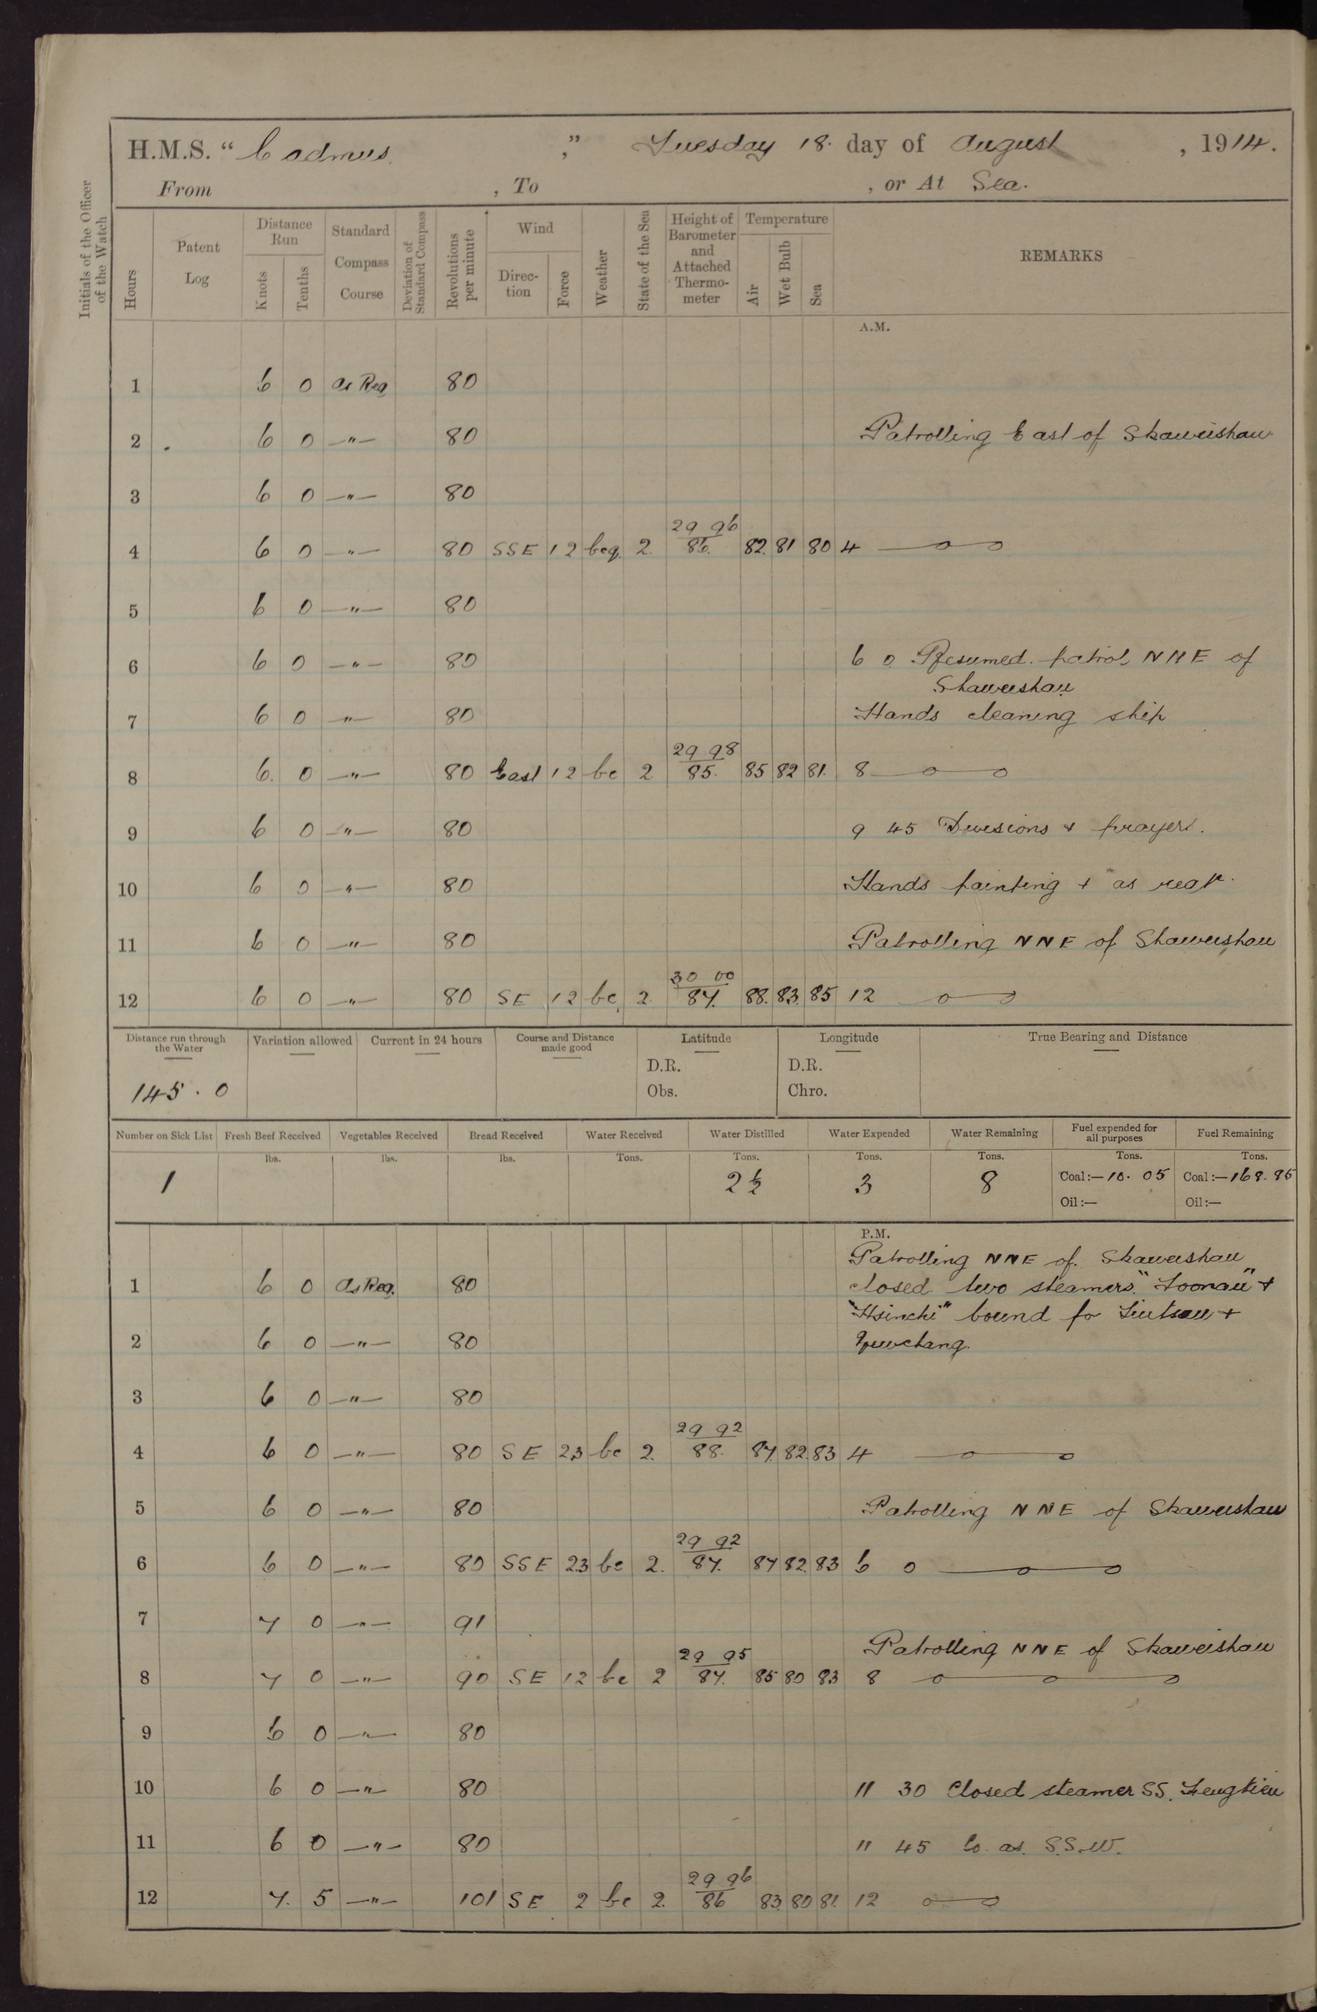 H.M.S. " Cadmus ," Tuesday 18. day of August , 1914.
From , To , or At Sea.
Initials of the Officer of the Watch
Hours
Patent Log
Distance Run
Knots
Tenths
Standard Compass Course
Deviation of Standard Compass
Revolutions per minute
Wind
Direc-tion
Force
Weather
State of the Sea
Height of Barometer and Attached Thermo-meter
Temperature
Air
Wet Bulb
Sea
REMARKS
A.M.
1 6 0 As Req 80
2 6 0 —"— 80 Patrolling East of Shaweishan
3 6 0 —"— 80
29 96
4 6 0 —"— 80 SSE 1 2 bcq. 2 86. 82 81 80 4
5 6 0 —"— 80
6 6 0 —"— 80 6 0 Resumed patrol NNE of
Shaweishan
7 6 0 —"— 80 Hands cleaning ship
29 98
8 6. 0 —"— 80 East 1 2 bc 2 85. 85 82 81. 8
9 6 0 —"— 80 9 45 Divisions & prayers.
10 6 0 —"— 80 Hands painting & as reqr.
11 6 0 —"— 80 Patrolling NNE of Shaweishan
30 00
12 6 0 —"— 80 SE 1 2 bc 2 87. 88. 83. 85 12
Distance run through the Water
Variation allowed
Current in 24 hours
Course and Distance made good
Latitude
Longitude
True Bearing and Distance
D.R. D.R.
145 . 0 Obs. Chro.
Number on Sick List
Fresh Beef Received
Vegetables Received
Bread Received
Water Received
Water Distilled
Water Expended
Water Remaining
Fuel expended for all purposes
Fuel Remaining
lbs. lbs. lbs. Tons. Tons. Tons. Tons. Tons. Tons.
1 2½ 3 8 Coal:—10. 05 Coal:—168. 95
Oil:— Oil:—
P.M.
Patrolling NNE of. Shaweishan
1 6 0 As Req. 80 closed two steamers "Loonan" &
"Hsinchi" bound for &
2 6 0 —"— 80 Newchang.
3 6 0 —"— 80
29 92
4 6 0 —"— 80 SE 23 bc 2. 88. 87. 82. 83 4
5 6 0 —"— 80 Patrolling NNE of Shaweishan
29 92
6 6 0 —"— 80 SSE 23 bc 2. 87. 87 82. 83 6 0
7 7 0 —"— 91
29 95 Patrolling NNE of Shaweishan
8 7 0 —"— 90 SE 12 bc 2 87. 85 80 83 8
9 6 0 —"— 80
10 6 0 —"— 80 11 30 Closed steamer SS. Fengtien
11 6 0 —"— 80 11 45 Co. as. S.S.W.
29 96
12 7. 5 —"— 101 SE 2 bc 2. 86 83. 80 81. 12